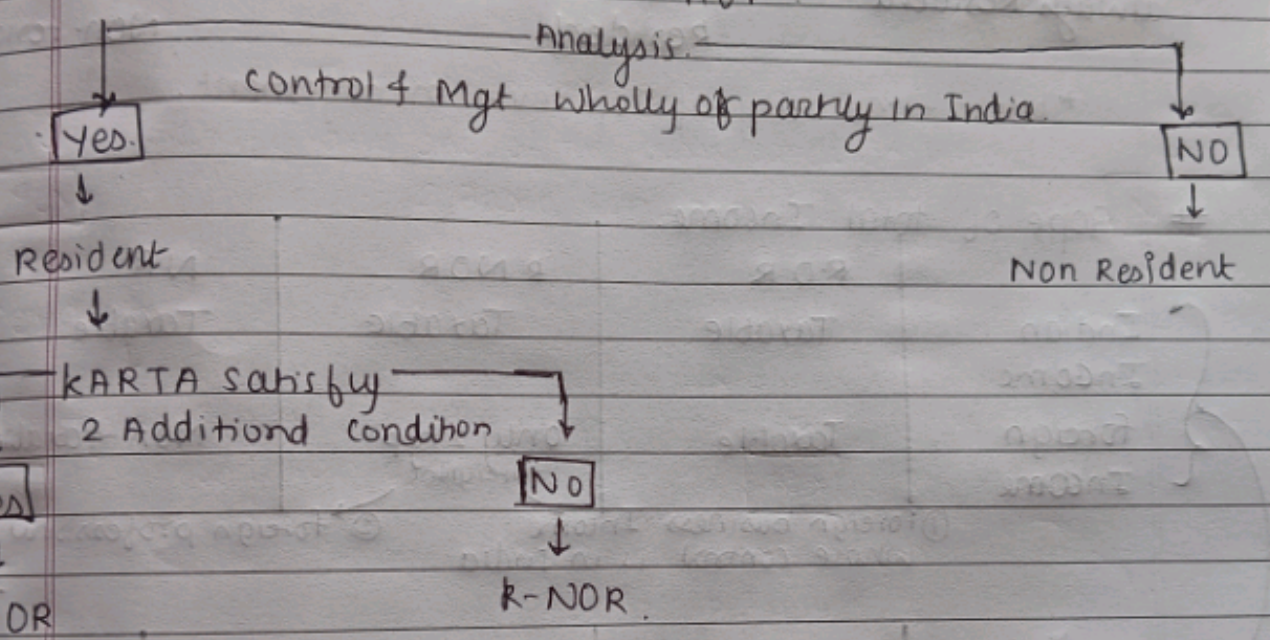 Analysis.
Control & Mgt wholly or partly in India.
Yes.
NO
Resident
Non Resident
KARTA Satisfy
2 Additiond Condition
NO
R-NOR.
OR